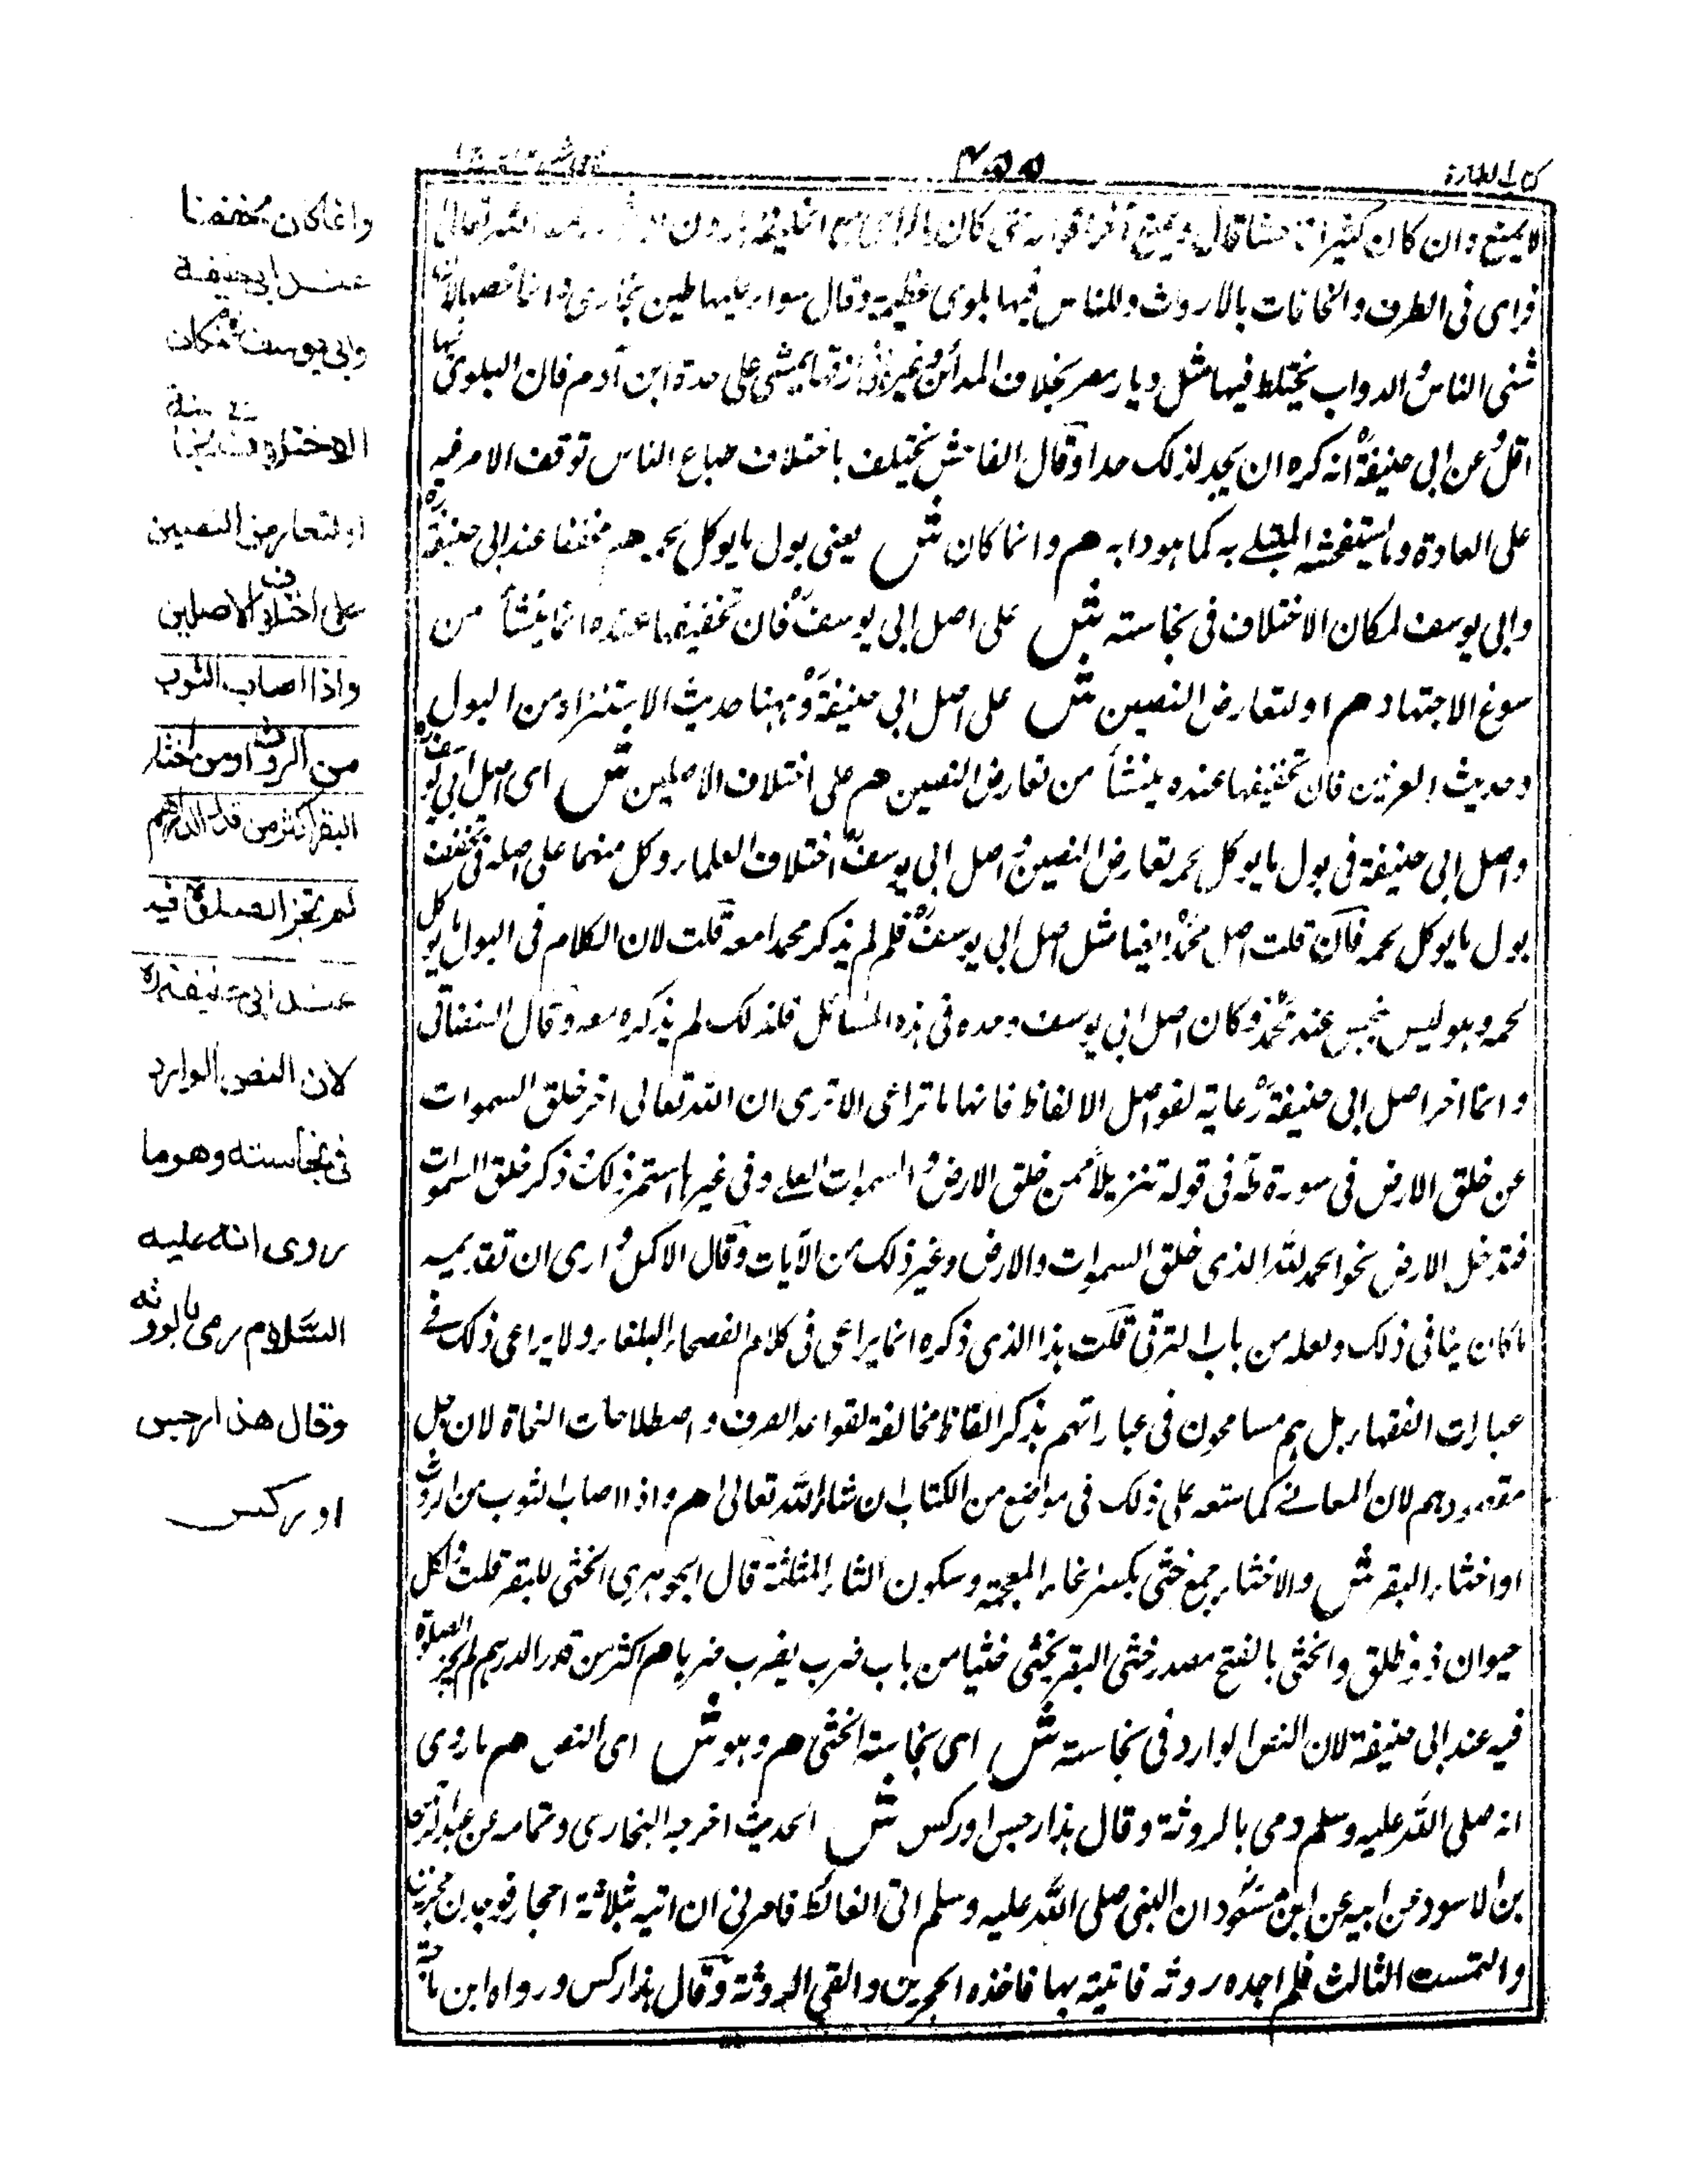 كتاب الطهارة
۴۵۵
لا يمنع وان كان كثيرا فاحشا قال ويمنع آخرا قوله حتى كان بالرى مع الخليفة هارون تعالى
فراى فى الطرق والخانات بالارواث وللناس فيها بلوى عظيمة وقال سوا عليها طين بخارى وانما خصها لان
مشى الناس والدواب يختلط فيها مثل ديار مصر بخلاف المدائن وغيرها فى ازقتها يمشى على حدة ابن آدم فان البلوى فيها
اقل وعن ابى حنيفة انه كره ان يحد لذلك حدا وقال الفاحش يختلف باختلاف طباع الناس توقف الامر فيه
على العادة وما يستفحشه المبتلے به كما هو دابه هم وانما كان ش يعنى بول ما يوكل لحمه هم مخففا عند ابى حنيفة ره
وابى يوسف لمكان الاختلاف فى نجاسته ش على اصل ابى يوسف فان تخفيفها عنده انما ينشأ من
سوغ الاجتهاد هم او لتعارض النصين ش على اصل ابى حنيفة وههنا حديث الاستنزاه من البول
وحديث العرنين فان تخفيفها عنده ينشأ من تعارض النصين هم على اختلاف الاصلين ش اى اصل ابى يوسف ره
واصل ابى حنيفة فى بول ما يوكل لحمه تعارض النصين واصل ابى يوسف اختلاف العلماء وكل منهما على اصله فى تخفيف
بول ما يوكل لحمه فان قلت اصل محمد ايضا مثل اصل ابى يوسف فلم لم يذكر محمدا معه قلت لان الكلام فى البول ما يوكل
لحمه وهو ليس بنجس عند محمد وكان اصل ابى يوسف وحده فى هذه المسائل فلذلك لم يذكره معه وقال السغناقى
وانما اخر اصل ابى حنيفة رعاية لفواصل الالفاظ فانها ما تراعى الا ترى ان الله تعالى اخر خلق السموات
عن خلق الارض فى سورة طه فى قوله تنزيلا ممن خلق الارض والسموات العلے وفى غيرها استمر ذلك ذكر خلق السموات
فتدخل الارض نحو الحمد لله الذى خلق السموات والارض وغير ذلك من الآيات وقال الاكمل وارى ان تقديمه
ما كان ينافى ذلك ولعله من باب الترقى قلت هذا الذى ذكره انما يراعى فى كلام الفصحاء البلغاء ولا يراعى ذلك فے
عبارات الفقهاء بل هم مسامحون فى عباراتهم بذكر الفاظ مخالفة لقواعد الصرف واصطلاحات النحاة لان جل
مقصودهم لان المعانے كما ستعه على ذلك فى مواضع من الكتاب ان شاء الله تعالى هم واذا اصاب الثوب من الروث
او اخثاء البقر ش والاخثاء جمع خثى بكسر الخاء المعجمة وسكون الثاء المثلثة قال الجوهرى الخثى للبقر قلت ولكل
حيوان ذو ظلف والخثى بالفتح مصدر خثى البقر يخثى خثيا من باب ضرب يضرب ضربا هم اكثر من قدر الدرهم لم تجز الصلوة
فيه عند ابى حنيفة لان النص الوارد فى نجاسته ش اى نجاسة الخثى هم وهو ش اى النص هم ما روى
انه صلى الله عليه وسلم رمى بالروثة وقال هذا رجس او ركس ش الحديث اخرجه البخارى وتمامه عن عبد الرحمن
بن الاسود عن ابيه عن ابن مسعود ان النبى صلى الله عليه وسلم اتى الغائط فامرنى ان اتيه بثلاثة احجار فوجدت حجرين
والتمست الثالث فلم اجده روثه فاتيته بها فاخذه الحجرين والقى الروثة وقال هذا ركس ورواه ابن ماجة
وانما كان مخففا
عند ابى حنيفة
وابى يوسف لمكان
الاختلاف فى نجاسته
او لتعارض النصين
على اختلاف الاصلين
واذا اصاب الثوب
من الروث او من اخثاء
البقر اكثر من قدر الدراهم
لم تجز الصلوة فيه
عند ابى حنيفة ره
لان النص الوارد
فى نجاسته وهو ما
روى انه عليه
السلام رمى بالروثه
وقال هذا رجس
او ركس